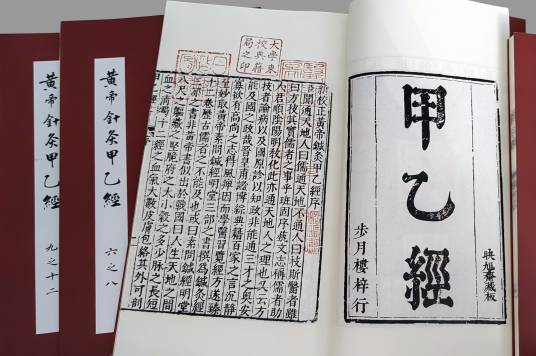 映旭齋藏板
甲乙經
步月樓梓行
大學東
校典籍
局之印
新校正黃帝鍼灸甲乙經序
臣聞通天地人曰儒通天地不通人曰技斯醫者雖
曰方技其實儒者之事乎班固序藝文志稱儒者助
人君順陰陽明教化此亦通天地人之理也又云方
技者論病以及國原診以知政非能通三才之奧安
能及國之政哉晉皇甫謐博綜典籍百家之言沉靜
寡欲有高尚之志得風痹因而學醫習覽經方遂臻
至妙取黃帝素問鍼經明堂三部之書撰為鍼灸經
十二卷歷古儒者之不能及也或曰素問鍼經明堂
三部之書非黃帝書似出於戰國曰人生天地之間
八尺之軀藏之堅脆府之大小穀之多少脈之長短
血之清濁十二經之血氣大數皮膚包絡其外可剖
黃帝針灸甲乙經
六之八
黃帝針灸甲乙經
九之十二